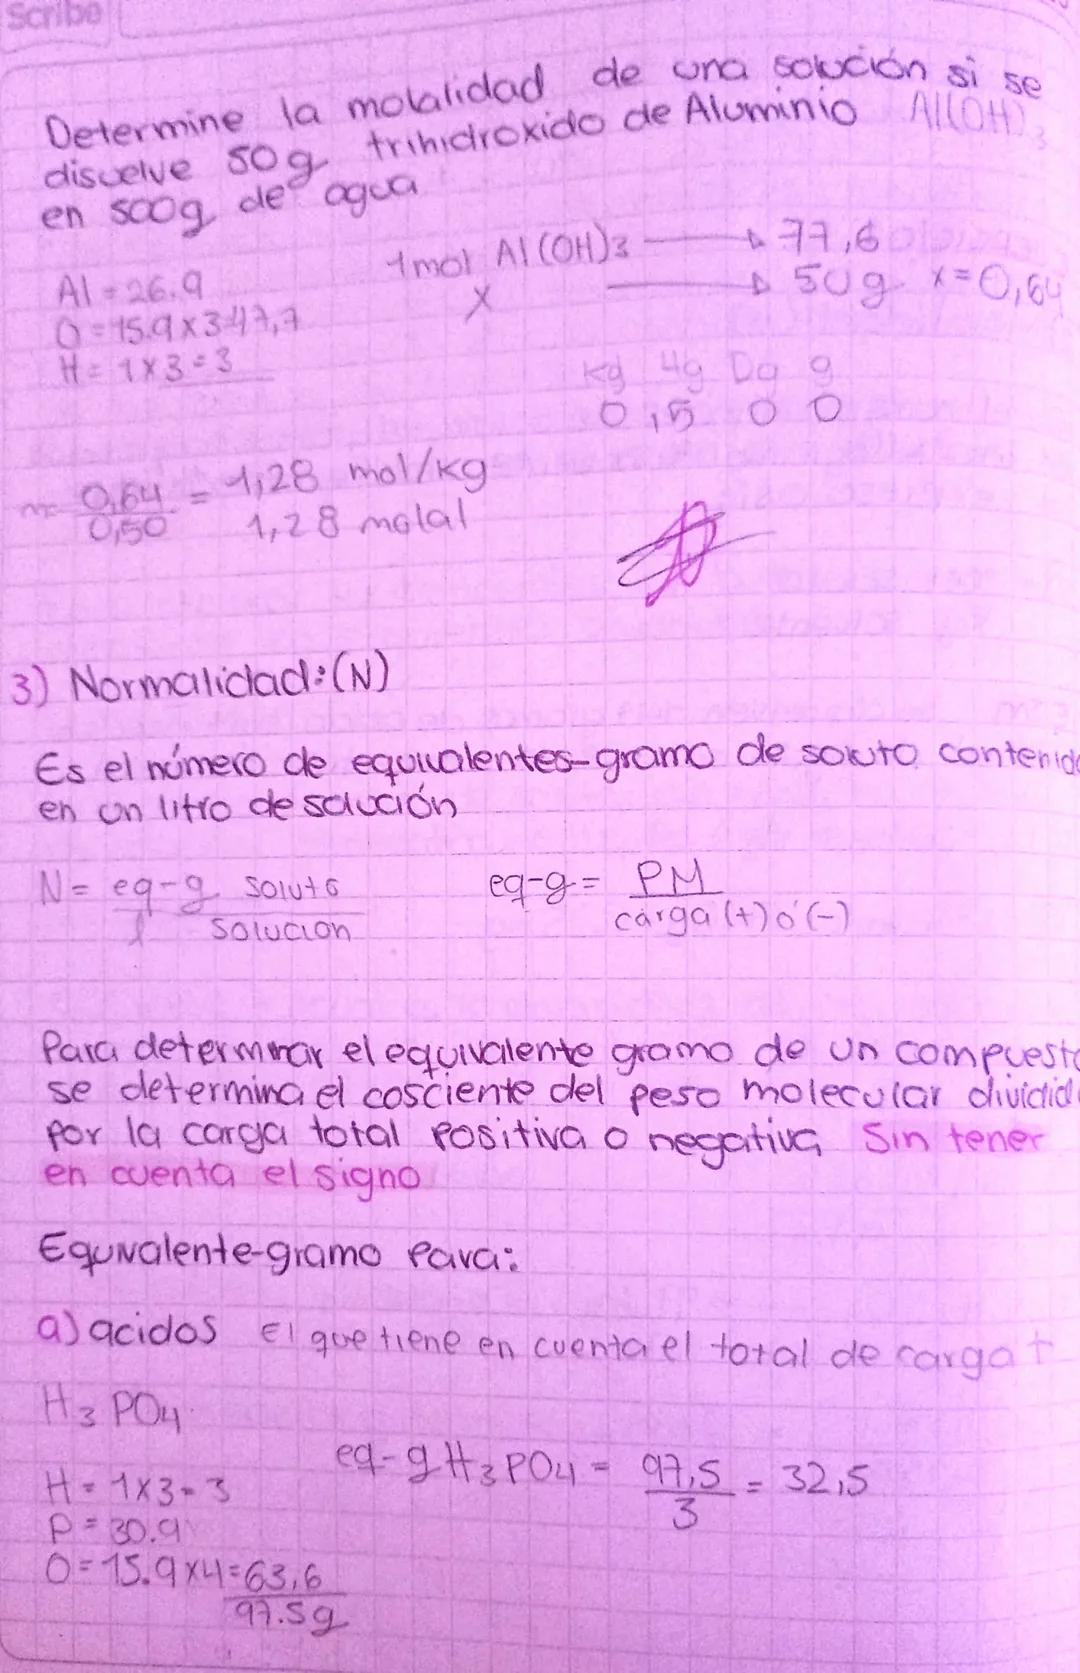 Scribe
Determine la molalidad de una solución si se
disuelve 50g trihidroxido de Aluminio Al(OH)3
en 500g de agua
1mol Al(OH)3 → 77,6
Al = 26.9
x → 50g x=0,64
O = 15.9x3 47,7
H = 1x3=3
Kg Hg Dg g
0,5 0 0
m= 0,64/0,50 = 1,28 mol/kg
1,28 molal
3) Normalidad:(N)
Es el número de equivalentes-gramo de soluto contenido
en un litro de solución
N= eq-g soluto / l solucion
eq-g= PM / carga (+) ó (-)
Para determinar el equivalente gramo de un compuesto
se determina el cosciente del peso molecular dividid
por la carga total positiva o negativa Sin tener
en cuenta el signo
Equivalente-gramo para:
a) acidos El que tiene en cuenta el total de carga +
H3PO4
eq-g H3PO4 = 97,5/3 = 32,5
H = 1x3=3
P = 30.9
O = 15.9x4=63,6
97.5g